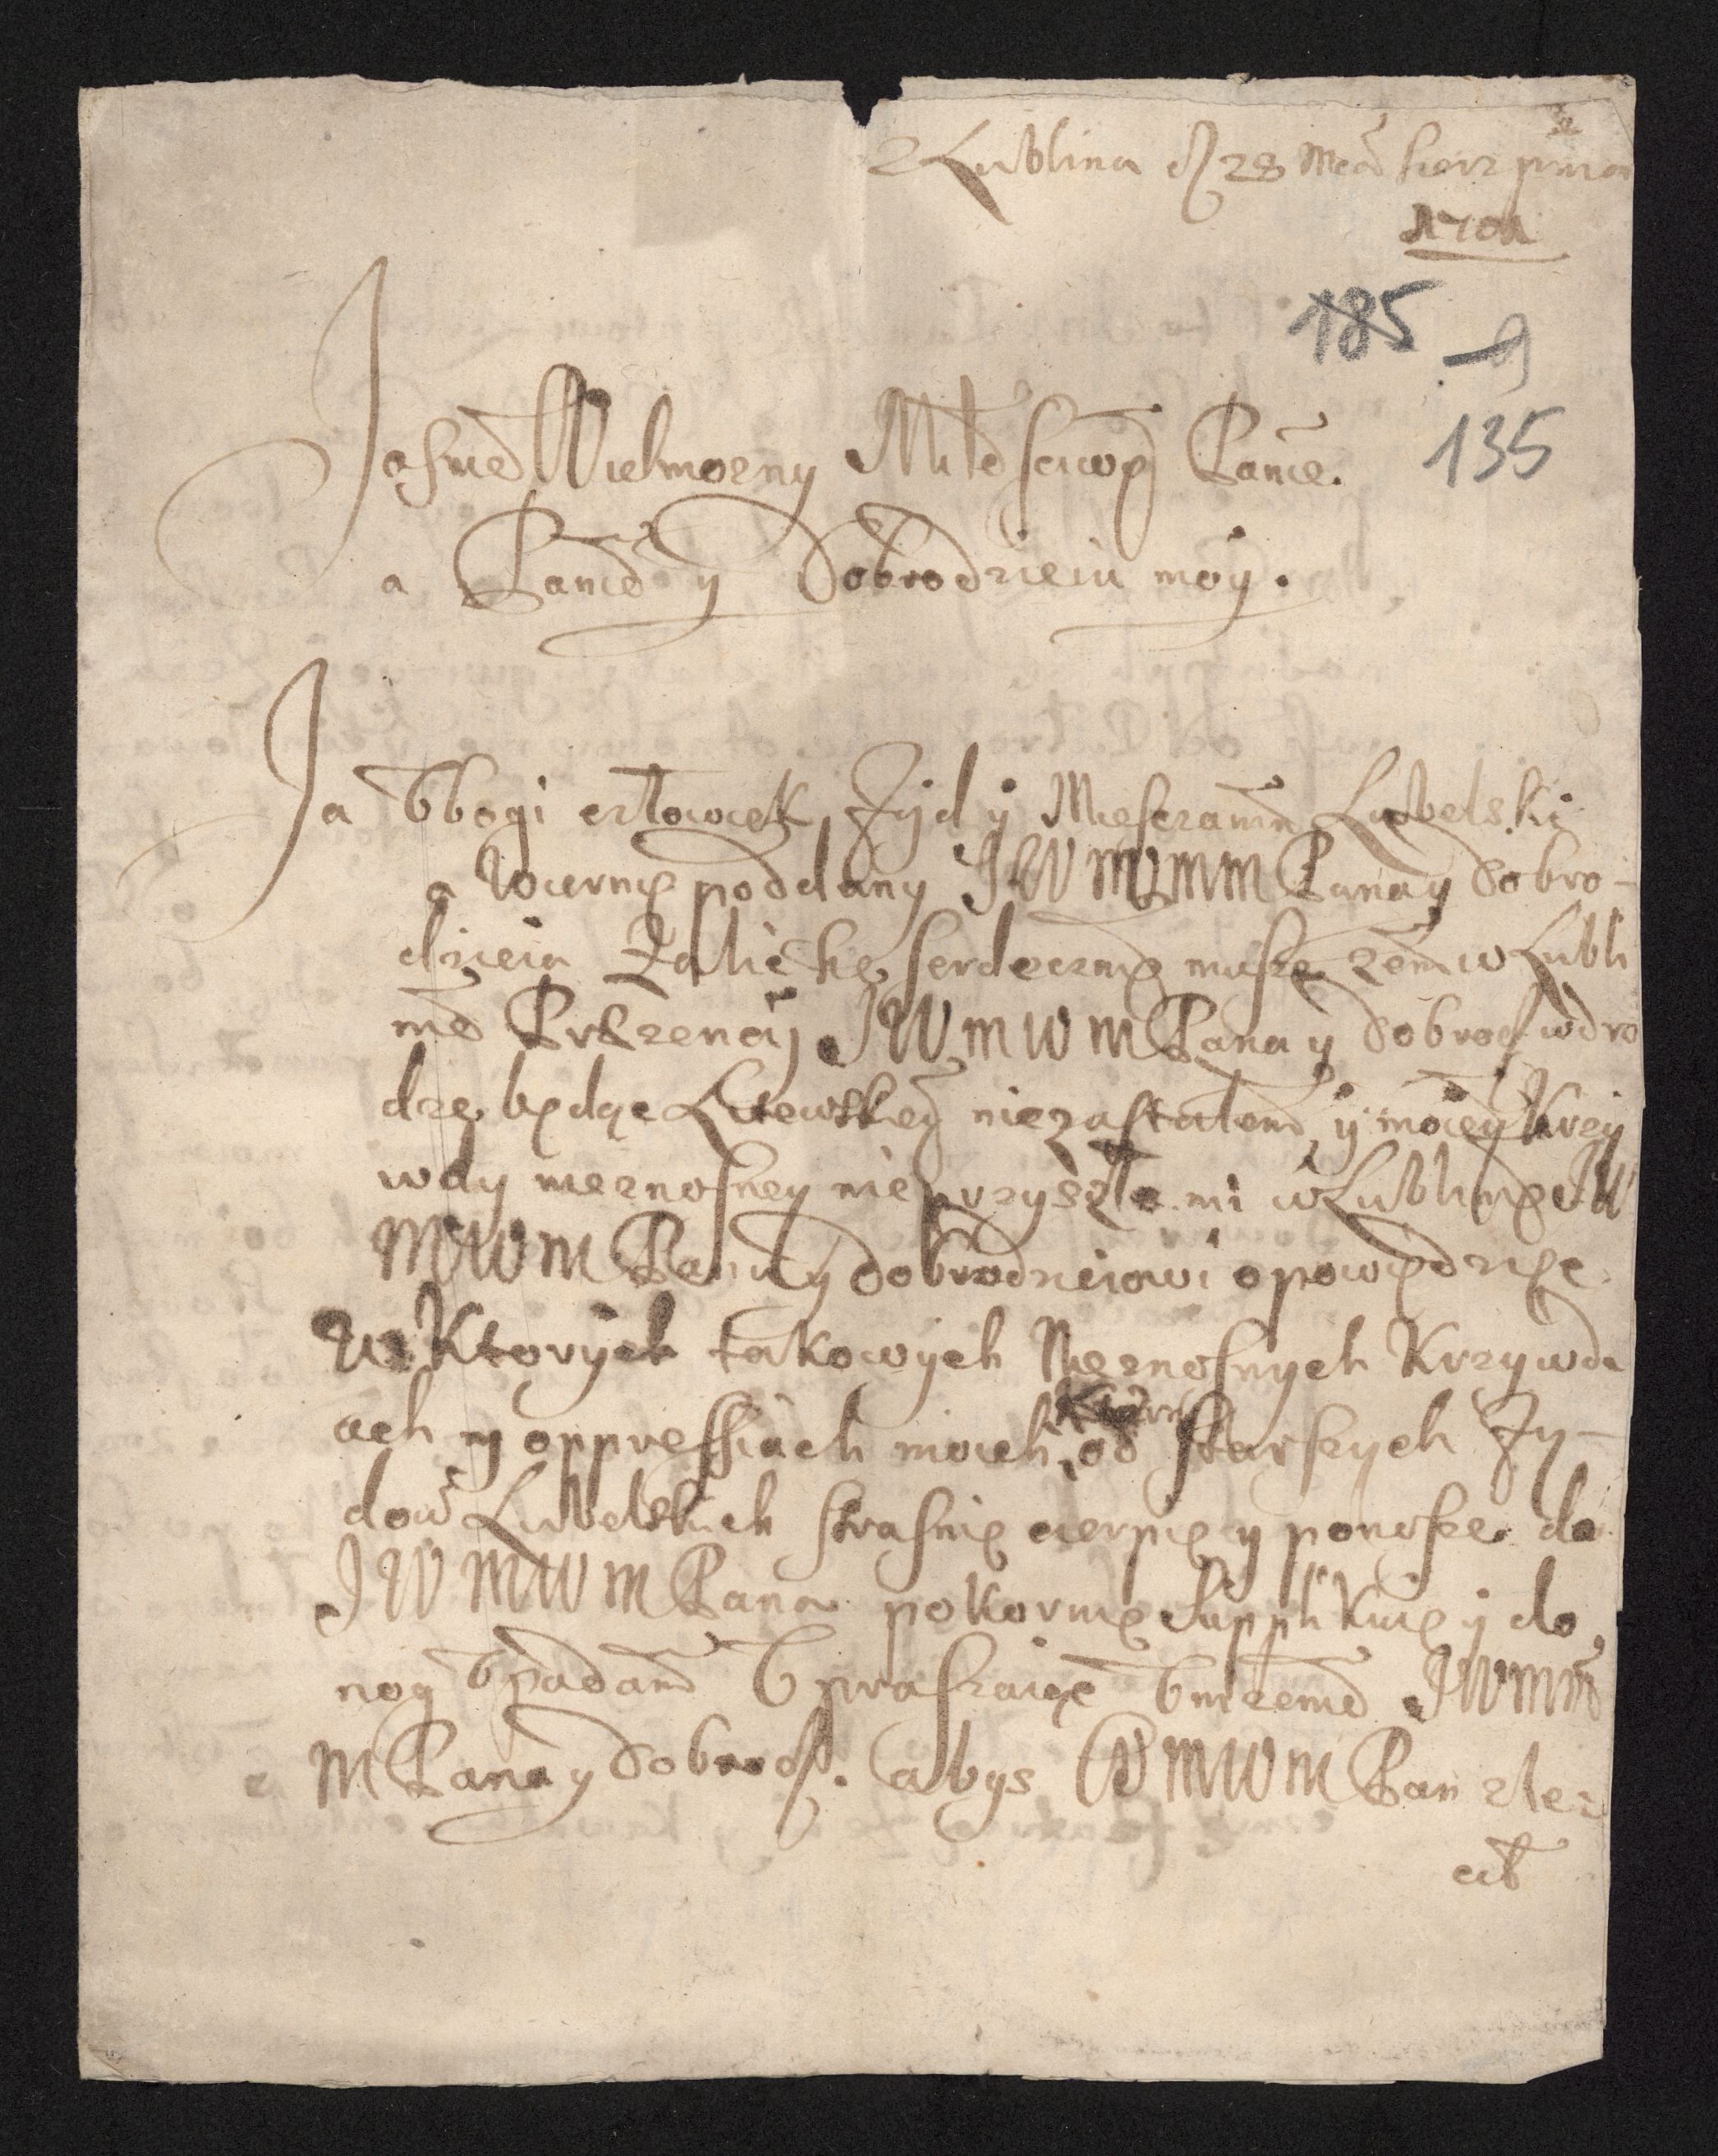 z Lublina d 28 Mca
1701
185
135
Jasnie Wielmozny Miłosciwy Panie.
a Panie y Dobrodzieiu moy.
Ja Vbogi człowiek Zyd y Miesczanin Lubelski
a wiernie poddany JWMWMM Pana y Dobro-
dzieia Zalić sie serdecznie musze zem w Lubli
nie Prezencyi JWMWM Pana y Dobrodz w dro
dze będąc Litewskiey niezastałem y moiey Krzy
wdy nieznosney nie przyszło mi w Lublinie JW
MWM Panu y Dobrodzieiowi opowiedziec
W Ktorych takowych Nieznosnych Krzywda
ach y oppressiach moich, Ktore od starszych Zy-
dow Lubelskich strasnie cierpie y ponosze do
JWMWM Pana pokornie supplikuie y do
nog Vpadam Vpraszaiąc Vnizenie JWMW
M Pana y Dobrodz. abys WMWM Pan zlec
cił